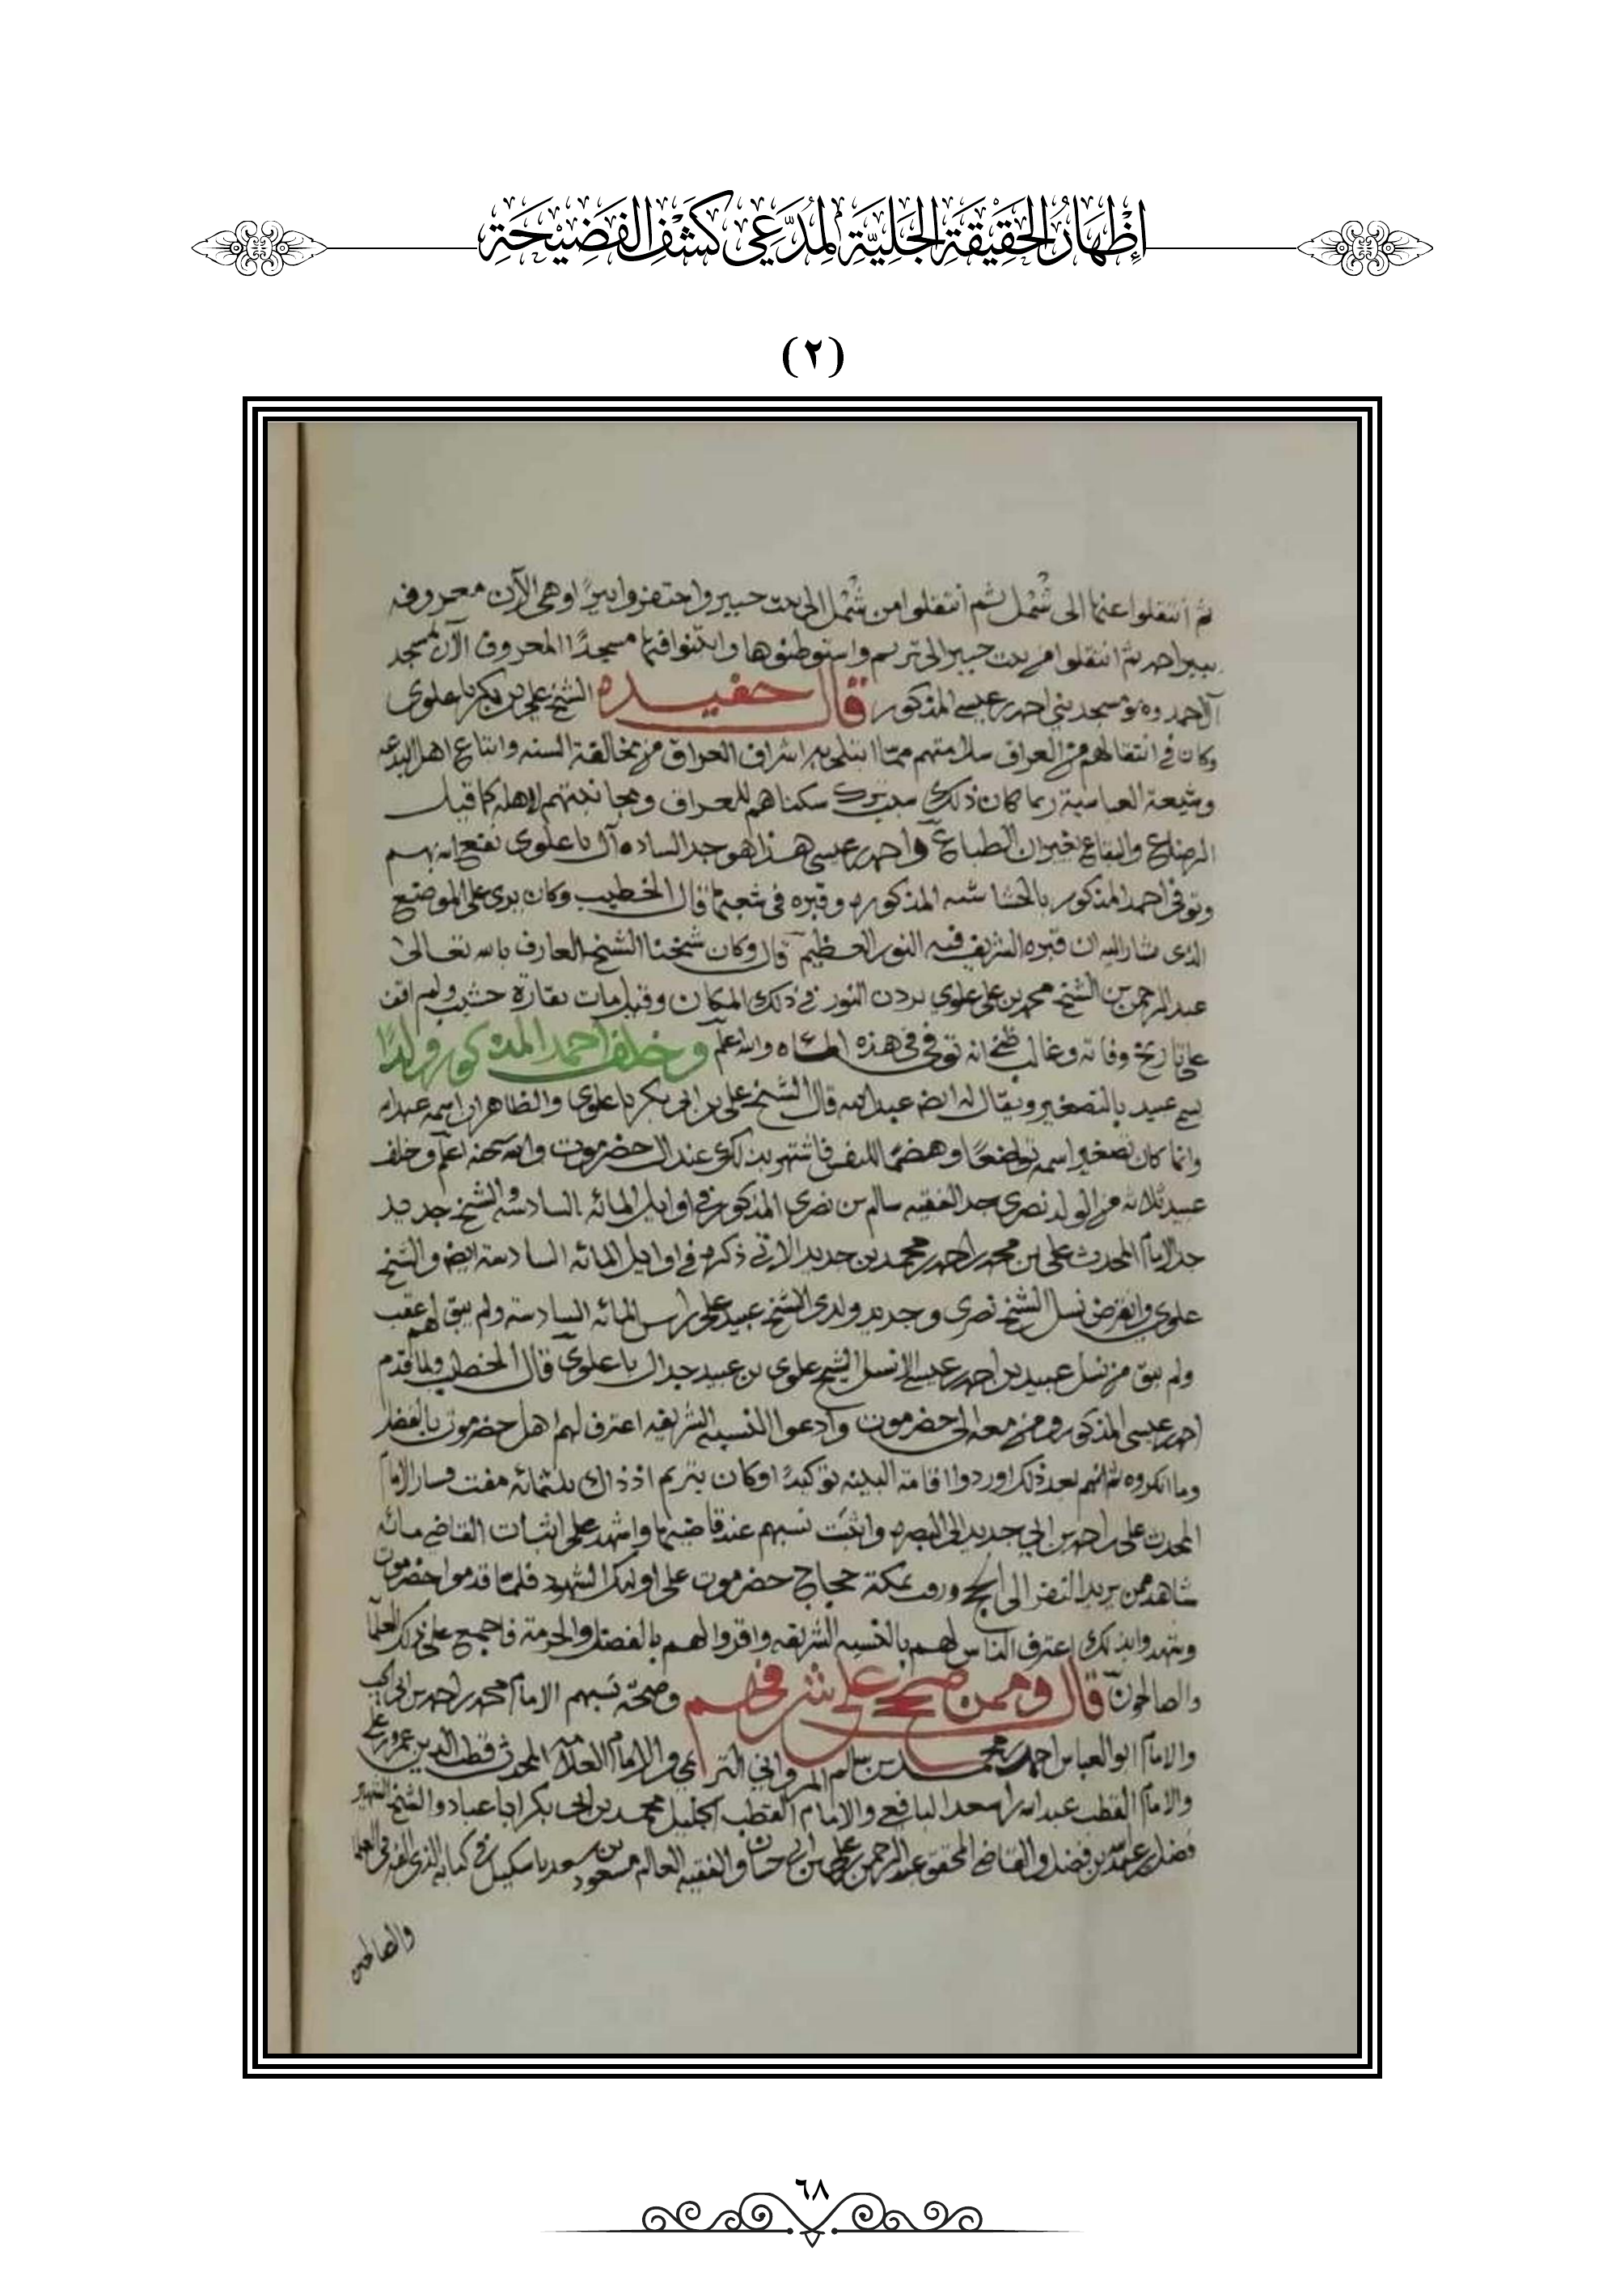 إِظْهَارُ الحَقِيْقَةِ الجَلِيَّةِ لِمُدَّعِي كَشْفِ الفَضِيْحَةِ
(٢)
ثم انتقلوا عنها الى شمل ثم انتقلوا من شمل الى بيت جبير واحتفروا بيرًا وهي الآن معروفه
ببير احمد ثم انتقلوا من بيت جبير الى تريم واستوطنوها وابتنوا فيها مسجدًا المعروف الآن بمسجد
آل احمد وهو مسجد بني احمد بن عيسى المذكور قال حفيده الشيخ علي بن بكر باعلوي
وكان في انتقالهم من العراق سلامتهم مما ابتلي به اشراف العراق من مخالفة السنه واتباع اهل البدعه
وشيعة العباسية ربما كان ذلك سكناهم للعراق ومجانبتهم لاهله كما قيل
الرضاع والبقاع يغيران الطباع واحمد بن عيسى هذا هو جد الساده آل باعلوي نفع الله بهم
وتوفي احمد المذكور بالحشاشه المذكوره وقبره في شعبها قال الخطيب وكان يرى على الموضع
الذى يشار اليه ان قبره الشريف فيه النور العظيم قال وكان شيخنا الشيخ العارف بالله تعالى
عبد الرحمن بن الشيخ محمد بن علي علوي النور في ذلك المكان وقيل مات بقارة جشيب ولم اقف
على تاريخ وفاته وغالب ظني انه توفي في هذه المائه والله اعلم وخلف احمد المذكور ولدًا
يسمى عبيد بالتصغير ويقال له ايضا عبد الله قال الشيخ علي بن ابى بكر باعلوي والظاهر ان اسمه عبد الله
وانما كان تصغير اسمه تواضعًا وهضمًا للنفس فاشتهر بذلك عند اهل حضرموت والله سبحنه اعلم وخلف
عبيد ثلاثه من الولد بصري جد الفقيه سالم بن بصري المذكور في اوايل المائه السادسه والشيخ جديد
جد الامام المحدث علي بن محمد بن احمد بن محمد بن جديد الاتي ذكره في اوايل المائه السادسة ايضا والشيخ
علوي وانقرض نسل الشيخ بصري وجديد ولدى الشيخ عبيد على راس المائه السادسة ولم يبق لهم عقب
ولم يبق من نسل عبيد بن احمد بن عيسى الا نسل الشيخ علوي بن عبيد جد ال باعلوي قال الخطيب ولما قدم
احمد بن عيسى المذكور ومن معه الى حضرموت وادعوا النسبه الشريفه اعترف لهم اهل حضرموت بالفضل
وما انكروه ثم انهم بعد ذلك ارادوا اقامة البينه توكيدًا وكان بتريم اذ ذاك ثلثمائه مفت فسار الامام
المحدث علي بن احمد بن ابي جديد الى البصره واثبت نسبهم عند قاضيها واشهد على اثبات القاضي مائه
شاهد ممن يريد السفر الى الحج ورقب بمكة حجاج حضرموت على اوليك الشهود فلما قدموا حضرموت
وشهدوا بذلك اعترف الناس لهم بالنسبه الشريفه واقروا لهم بالفضل والحرمة فاجمع على ذلك العلما
والصالحون قال وممن صحح على شرفهم وصحة نسبهم الامام محمد بن احمد بن ابي الحب
والامام ابو العباس احمد بن محمد بن سالم المرواني التريمي والامام العلامه المحدث قطب الدين عمر بن علي
والامام القطب عبد الله بن اسعد اليافعي والامام القطب الجليل محمد بن ابي بكر اباعباد والشيخ الشهير
فضل بن عبد الله بن فضل والقاضي المحقق عبد الرحمن بن علي بن حسان والفقيه العالم مسعود بن سعد باشكيل في كتابه الذى الفه في العلما
والصالحين
٦٨